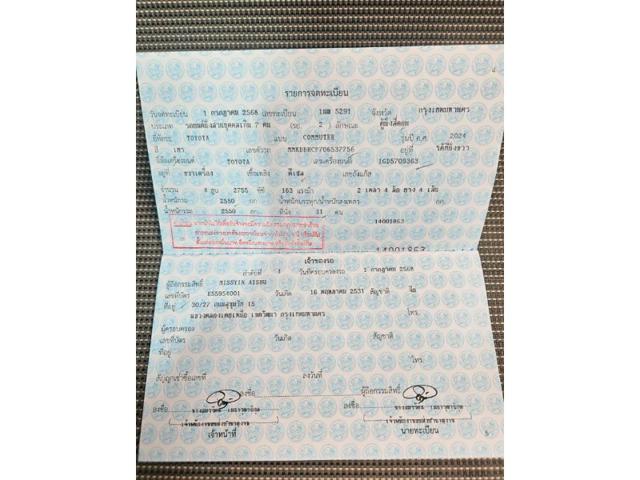 รายการจดทะเบียน
วันจดทะเบียน 1 กรกฎาคม 2568 เลขทะเบียน 5291 จังหวัด กรุงเทพมหานคร
ประเภท รถยนต์นั่งส่วนบุคคลเกิน 7 คน (รย. 2 ) ลักษณะ
ยี่ห้อรถ TOYOTA แบบ COMMUTER รุ่นปี ค.ศ. 2024
สี เทา เลขตัวรถ อยู่ที่
ยี่ห้อเครื่องยนต์ TOYOTA เลขเครื่องยนต์ 1GD5709363
อยู่ที่ ขวาเครื่อง เชื้อเพลิง ดีเซล เลขถังแก๊ส
จำนวน 4 สูบ 2755 ซีซี 163 แรงม้า 2 เพลา 4 ล้อ ยาง 4 เส้น
น้ำหนักรถ 2550 กก. น้ำหนักบรรทุก/น้ำหนักลงเพลา กก.
น้ำหนักรวม 2550 กก. ที่นั่ง 11 คน
14001863
14001863
เจ้าของรถ
ลำดับที่ 1 วันที่ครอบครองรถ 1 กรกฎาคม 2568
ผู้ถือกรรมสิทธิ์ AISHU
เลขที่บัตร E55954001 วันเกิด 16 พฤษภาคม 2531 สัญชาติ จีน
ที่อยู่ 30/27 ถนนสุขุมวิท 15
แขวงคลองเตยเหนือ เขตวัฒนา กรุงเทพมหานคร โทร.
ผู้ครอบครอง
เลขที่บัตร วันเกิด สัญชาติ
ที่อยู่
โทร.
สัญญาเช่าซื้อเลขที่ ลงวันที่
ลงชื่อ ผู้ถือกรรมสิทธิ์
ลงชื่อ ลงชื่อ
เจ้าหน้าที่ นายทะเบียน
5